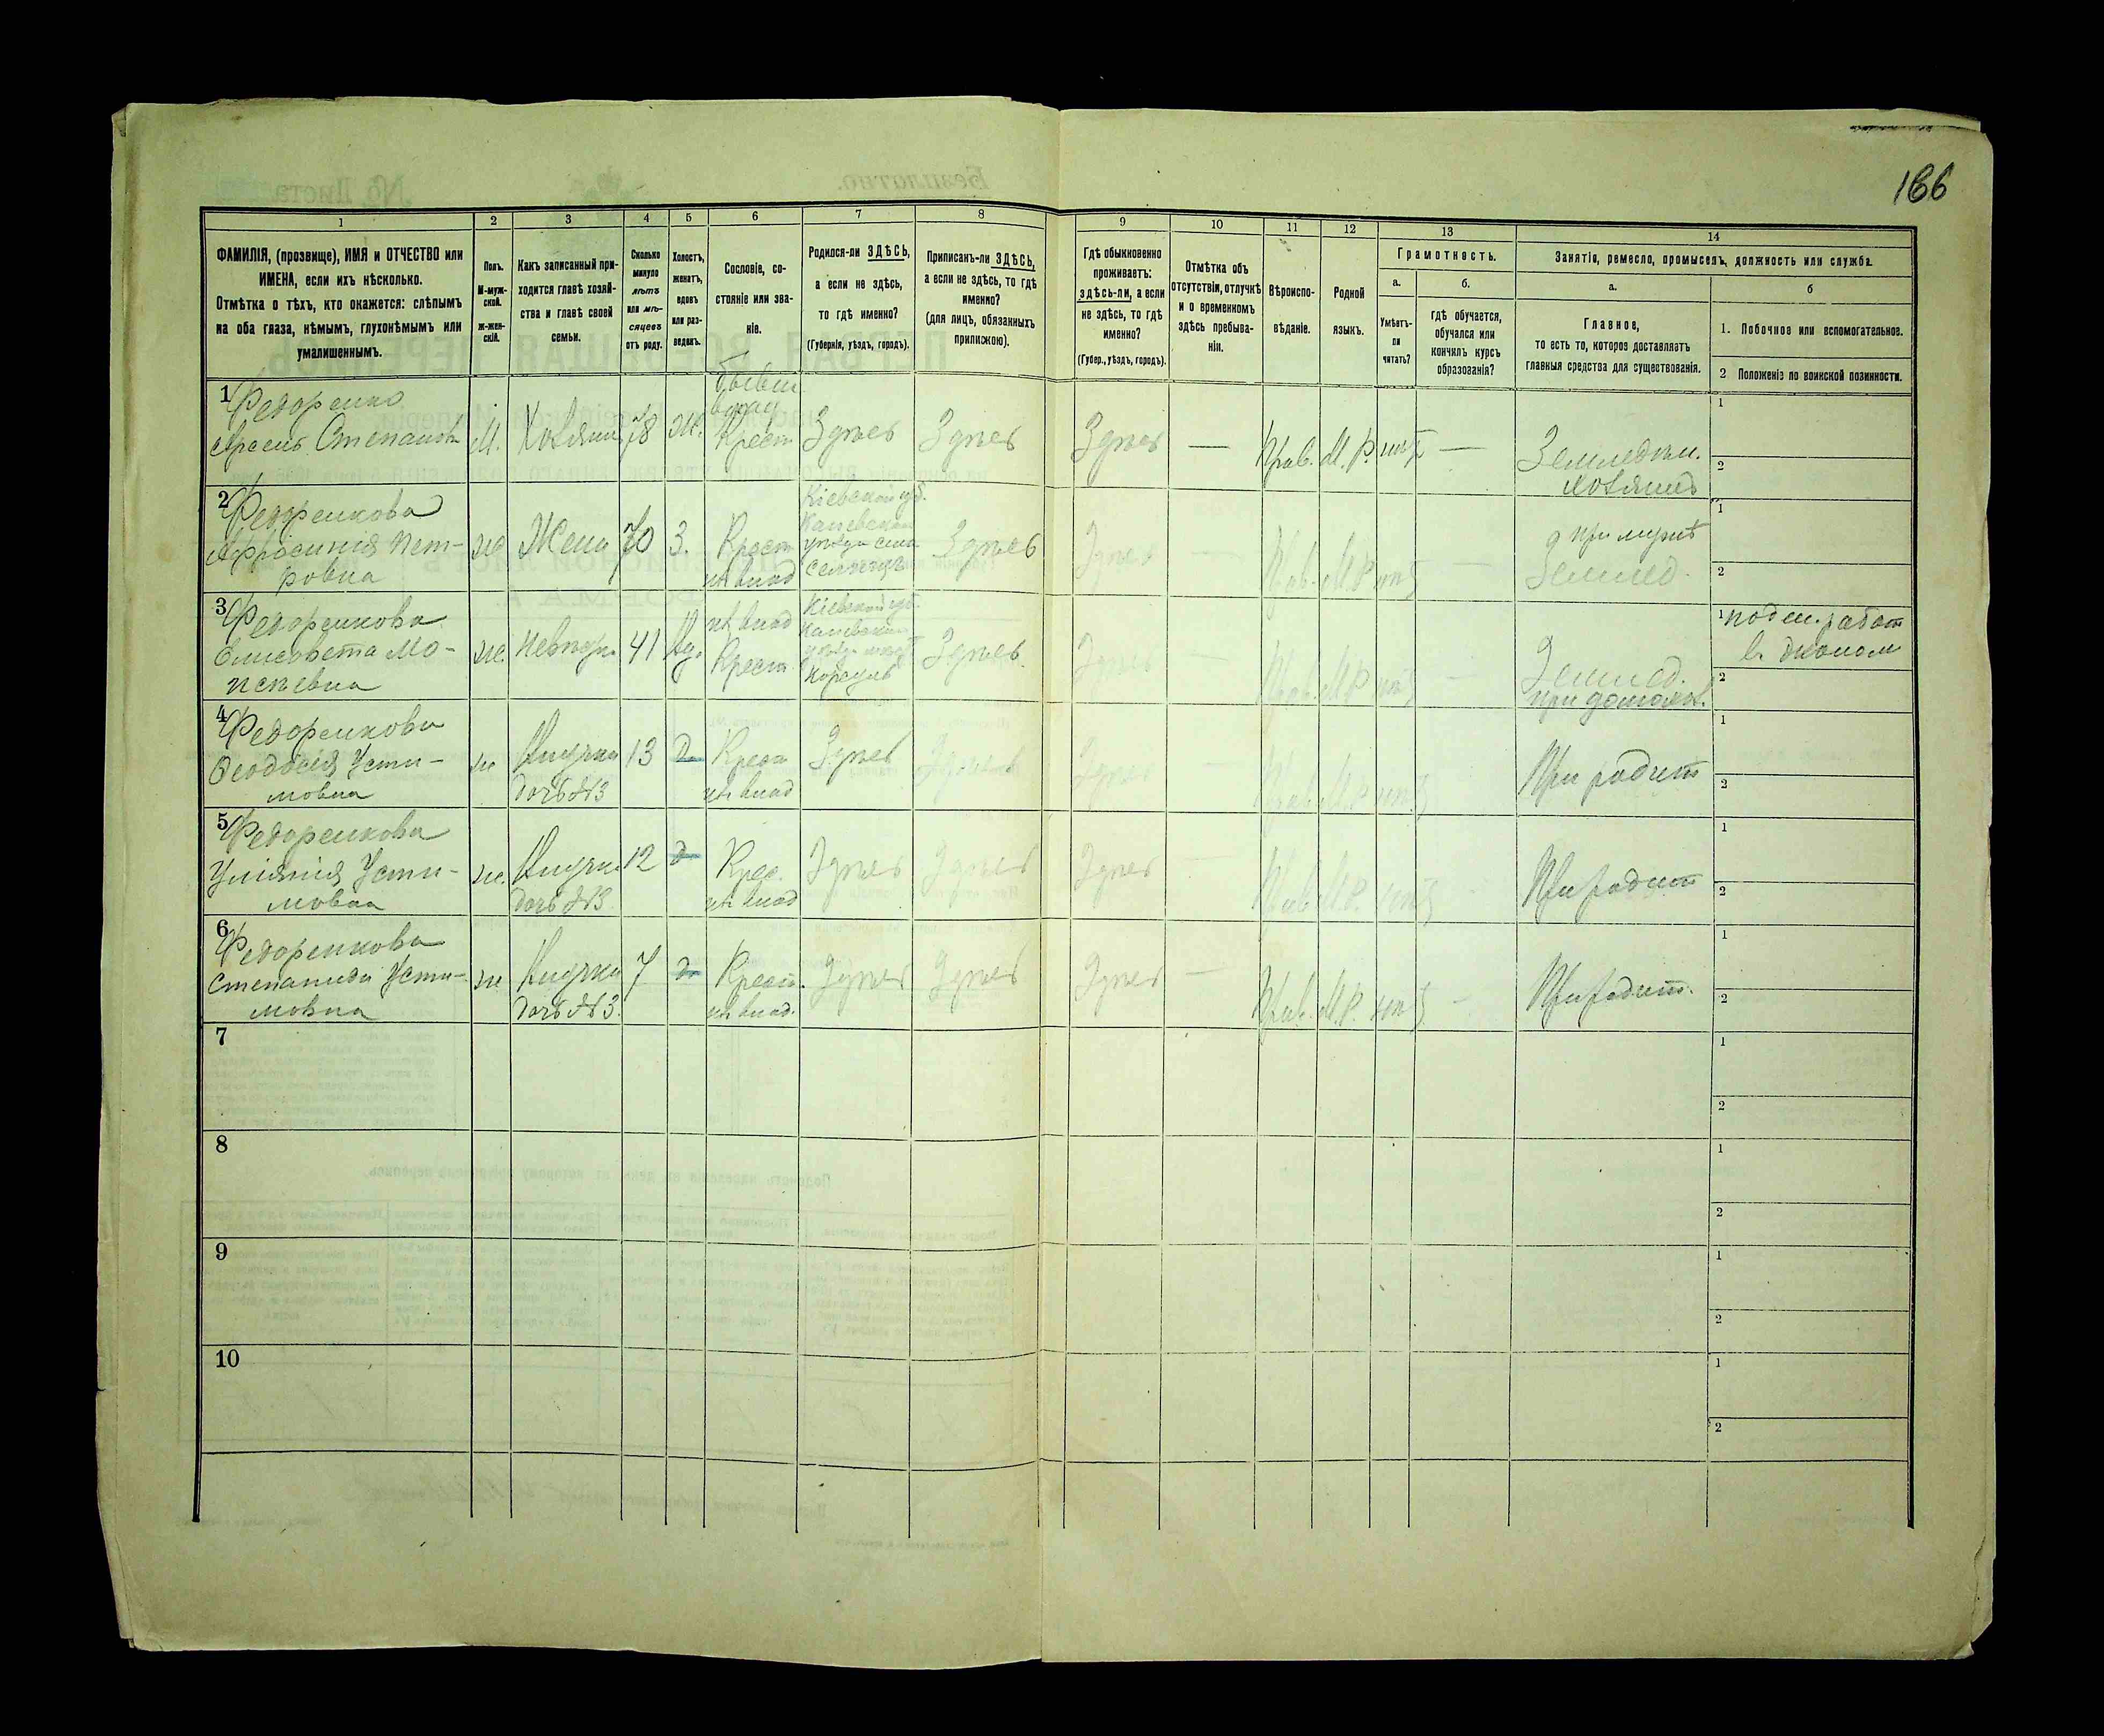 166
1
2
3
4
5
6
7
8
9
10
11
12
13
14
ФАМИЛІЯ, (прозвище), ИМЯ и ОТЧЕСТВО или
ИМЕНА, если ихъ нѣсколько.
Отмѣтка о тѣхъ, кто окажется: слѣпымъ
на оба глаза, нѣмымъ, глухонѣмымъ или
умалишеннымъ.
Полъ.
М-муж-
ской.
ж-жен-
скій.
Какъ записанный при-
ходится главѣ хозяй-
ства и главѣ своей
семьи.
Сколько
минуло
лѣтъ
или мѣ-
сяцевъ
отъ роду.
Холостъ,
женатъ,
вдовъ
или раз-
веденъ.
Сословіе, со-
стояніе или зва-
ніе.
Родился-ли ЗДѢСЬ,
а если не здѣсь,
то гдѣ именно?
(Губернія, уѣздъ, городъ).
Приписанъ-ли ЗДѢСЬ,
а если не здѣсь, то гдѣ
именно?
(для лицъ, обязанныхъ
припискою).
Гдѣ обыкновенно
проживаетъ:
здѣсь-ли, а если
не здѣсь, то гдѣ
именно?
(Губер., уѣздъ, городъ).
Отмѣтка объ
отсутствіи, отлучкѣ
и о временномъ
здѣсь пребыва-
ніи.
Вѣроиспо-
вѣданіе.
Родной
языкъ.
Грамотность.
а.
Умѣетъ-
ли
читать?
б.
гдѣ обучается,
обучался или
кончилъ курсъ
образованія?
Занятіе, ремесло, промыселъ, должность или служба.
а.
Главное,
то есть то, которое доставляетъ
главныя средства для существованія.
б
1. Побочное или вспомогательное.
2 Положеніе по воинской повинности.
1
Федоренко
Степановъ
М.
Хозяинъ
78
Ж.
бывш
влад
Крест
Здѣсь
Здѣсь
Здѣсь
—
Прав.
М. Р.
нѣтъ
—
Земледѣл.
хозяинъ
1
2
2
Федоренкова
Афросинія Пет-
ровна
ж
Жена
70
З.
Крест
из влад
Кіевской губ.
Каневскаго
уѣзда села
Здѣсь
Здѣсь
—
Прав.
М. Р.
нѣтъ
—
при мужѣ
Землед.
1
2
3
Федоренкова
Елисавета Мо-
исѣевна
ж.
Невѣстк
41
Вд.
из влад
Крест
Кіевской губ.
Каневскаго
уѣзда мѣст
Корсунь
Здѣсь.
Здѣсь
—
Прав.
М. Р.
нѣтъ
—
Землед.
при домохоз.
1 поден. работ
в эконом
2
4
Федоренкова
Ѳеодосія Усти-
мовна
ж
Внучка
дочь №3
13
Д
Крест
из влад
Здѣсь
Здѣсь
Здѣсь
—
Прав.
М. Р.
нѣтъ
—
При родит
1
2
5
Федоренкова
Уліянія Усти-
мовна
ж.
Внучка
дочь №3.
12
Д
Крес.
из влад
Здѣсь
Здѣсь
Здѣсь
—
Прав.
М. Р.
нѣтъ
При родит
1
2
6
Федоренкова
Степанида Усти-
мовна
ж
Внучка
дочь №3.
7
Д
Крест.
из влад.
Здѣсь
Здѣсь
Здѣсь
—
Прав.
М. Р.
нѣтъ
—
При родит.
1
2
7
1
2
8
1
2
9
1
2
10
1
2